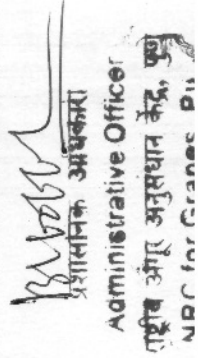 प्रशासनिक अधिकारी
Administrative Officer
राष्ट्रीय अंगूर अनुसंधान केंद्र, पुणे
NRC for Grapes, Pu